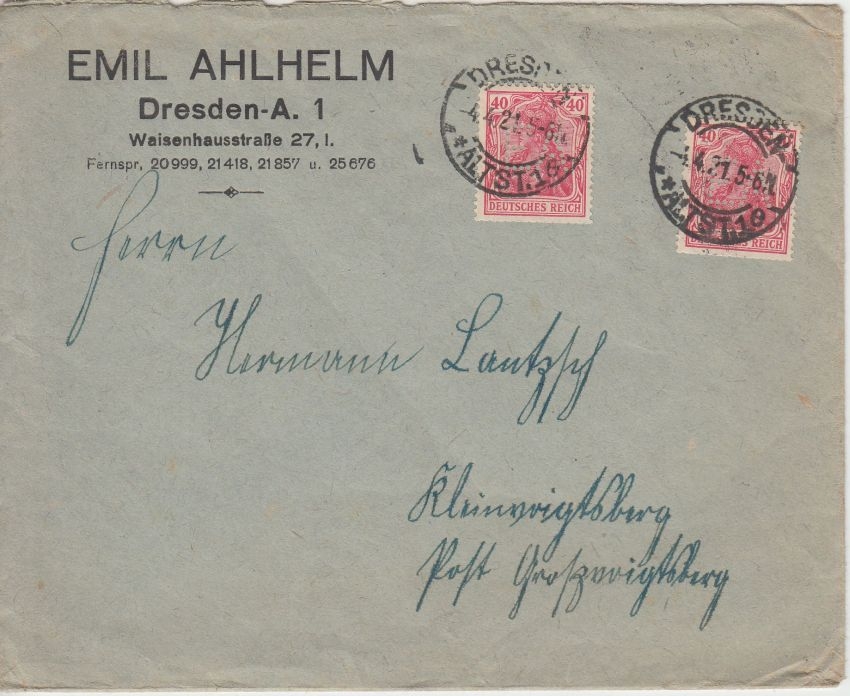 EMIL AHLHELM
Dresden-A. 1
Waisenhausstraße 27, I.
Fernspr, 20999, 21418, 21857 u. 25676
DRESDEN
4.4.21.5-6N.
* ALTST.16
40 40
DEUTSCHES REICH
DRESDEN
4.4.21.5-6N.
* ALTST.16
40
DEUTSCHES REICH
Herrn
Hermann Lantzsch
Kleinvoigtsberg
Post Großvoigtsberg